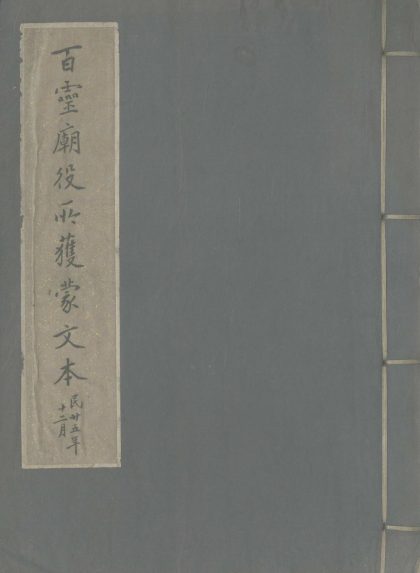 百靈廟役所獲蒙文本
民廿五年
十二月